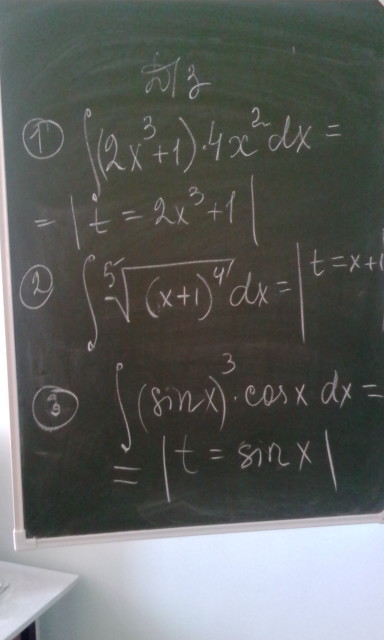 Д/з
① ∫(2x³+1)·4x²dx =
= | t = 2x³+1 |
② ∫⁵√(x+1)⁴ dx = | t = x+1
③ ∫(sinx)³·cosx dx =
= | t = sin x |